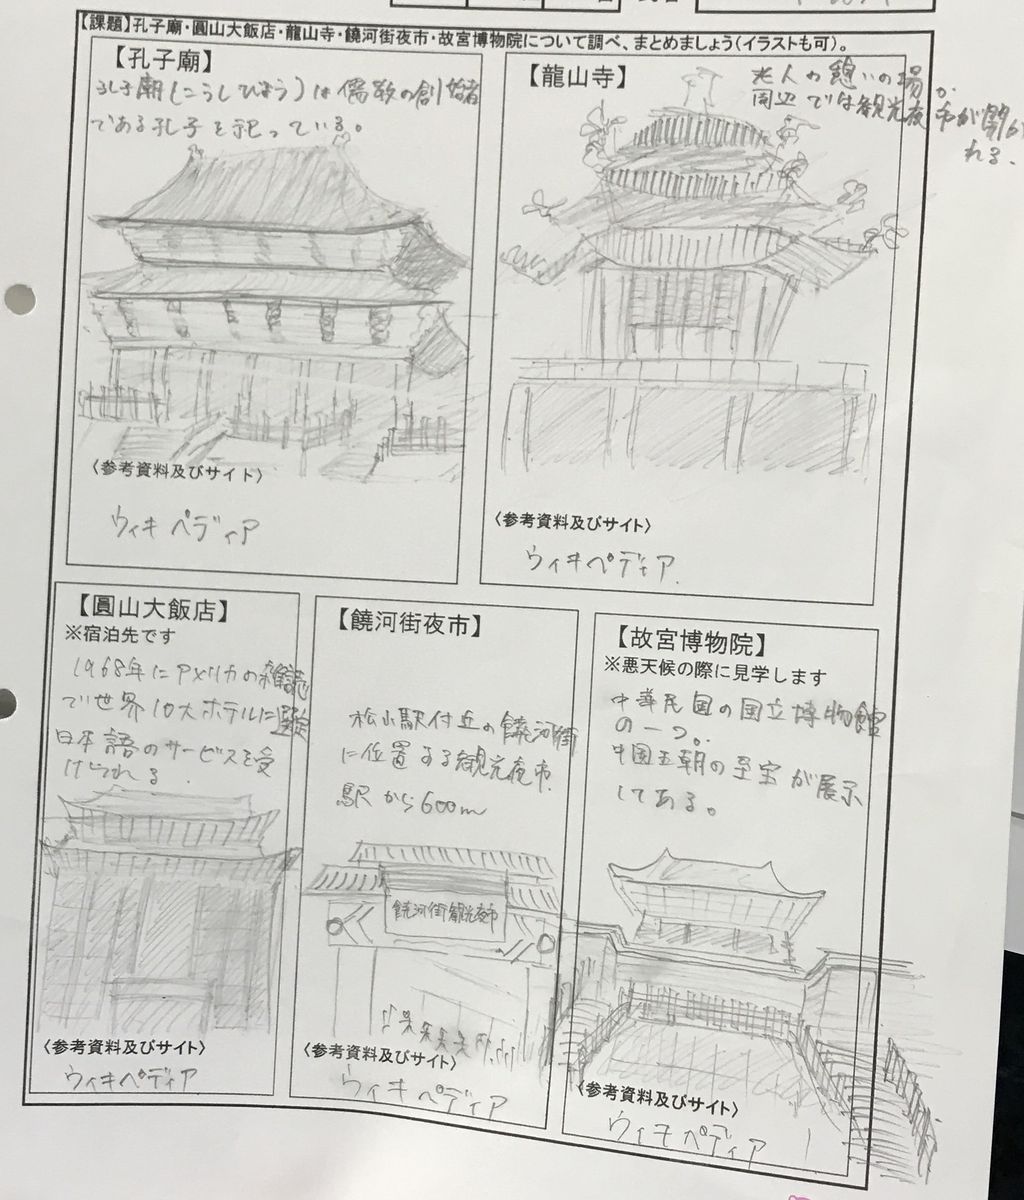 【課題】孔子廟・圓山大飯店・龍山寺・饒河街夜市・故宮博物院について調べ、まとめましょう(イラストも可)。
【孔子廟】
孔子廟(こうしびょう)は儒教の創始者
である孔子を祀っている。
〈参考資料及びサイト〉
ウィキペディア
【龍山寺】
老人の憩いの場が
周辺では観光夜市が開か
れる.
〈参考資料及びサイト〉
ウィキペディア.
【圓山大飯店】
※宿泊先です
1968年にアメリカの雑誌
で世界10大ホテルに選定
日本語のサービスを受
けられる.
〈参考資料及びサイト〉
ウィキペディア
【饒河街夜市】
松山駅付近の饒河街
に位置する観光夜市.
駅から600m
饒河街観光夜市
〈参考資料及びサイト〉
ウィキペディア
【故宮博物院】
※悪天候の際に見学します
中華民国の国立博物館
の一つ。
中国王朝の至宝が展示
してある。
〈参考資料及びサイト〉
ウィキペディア